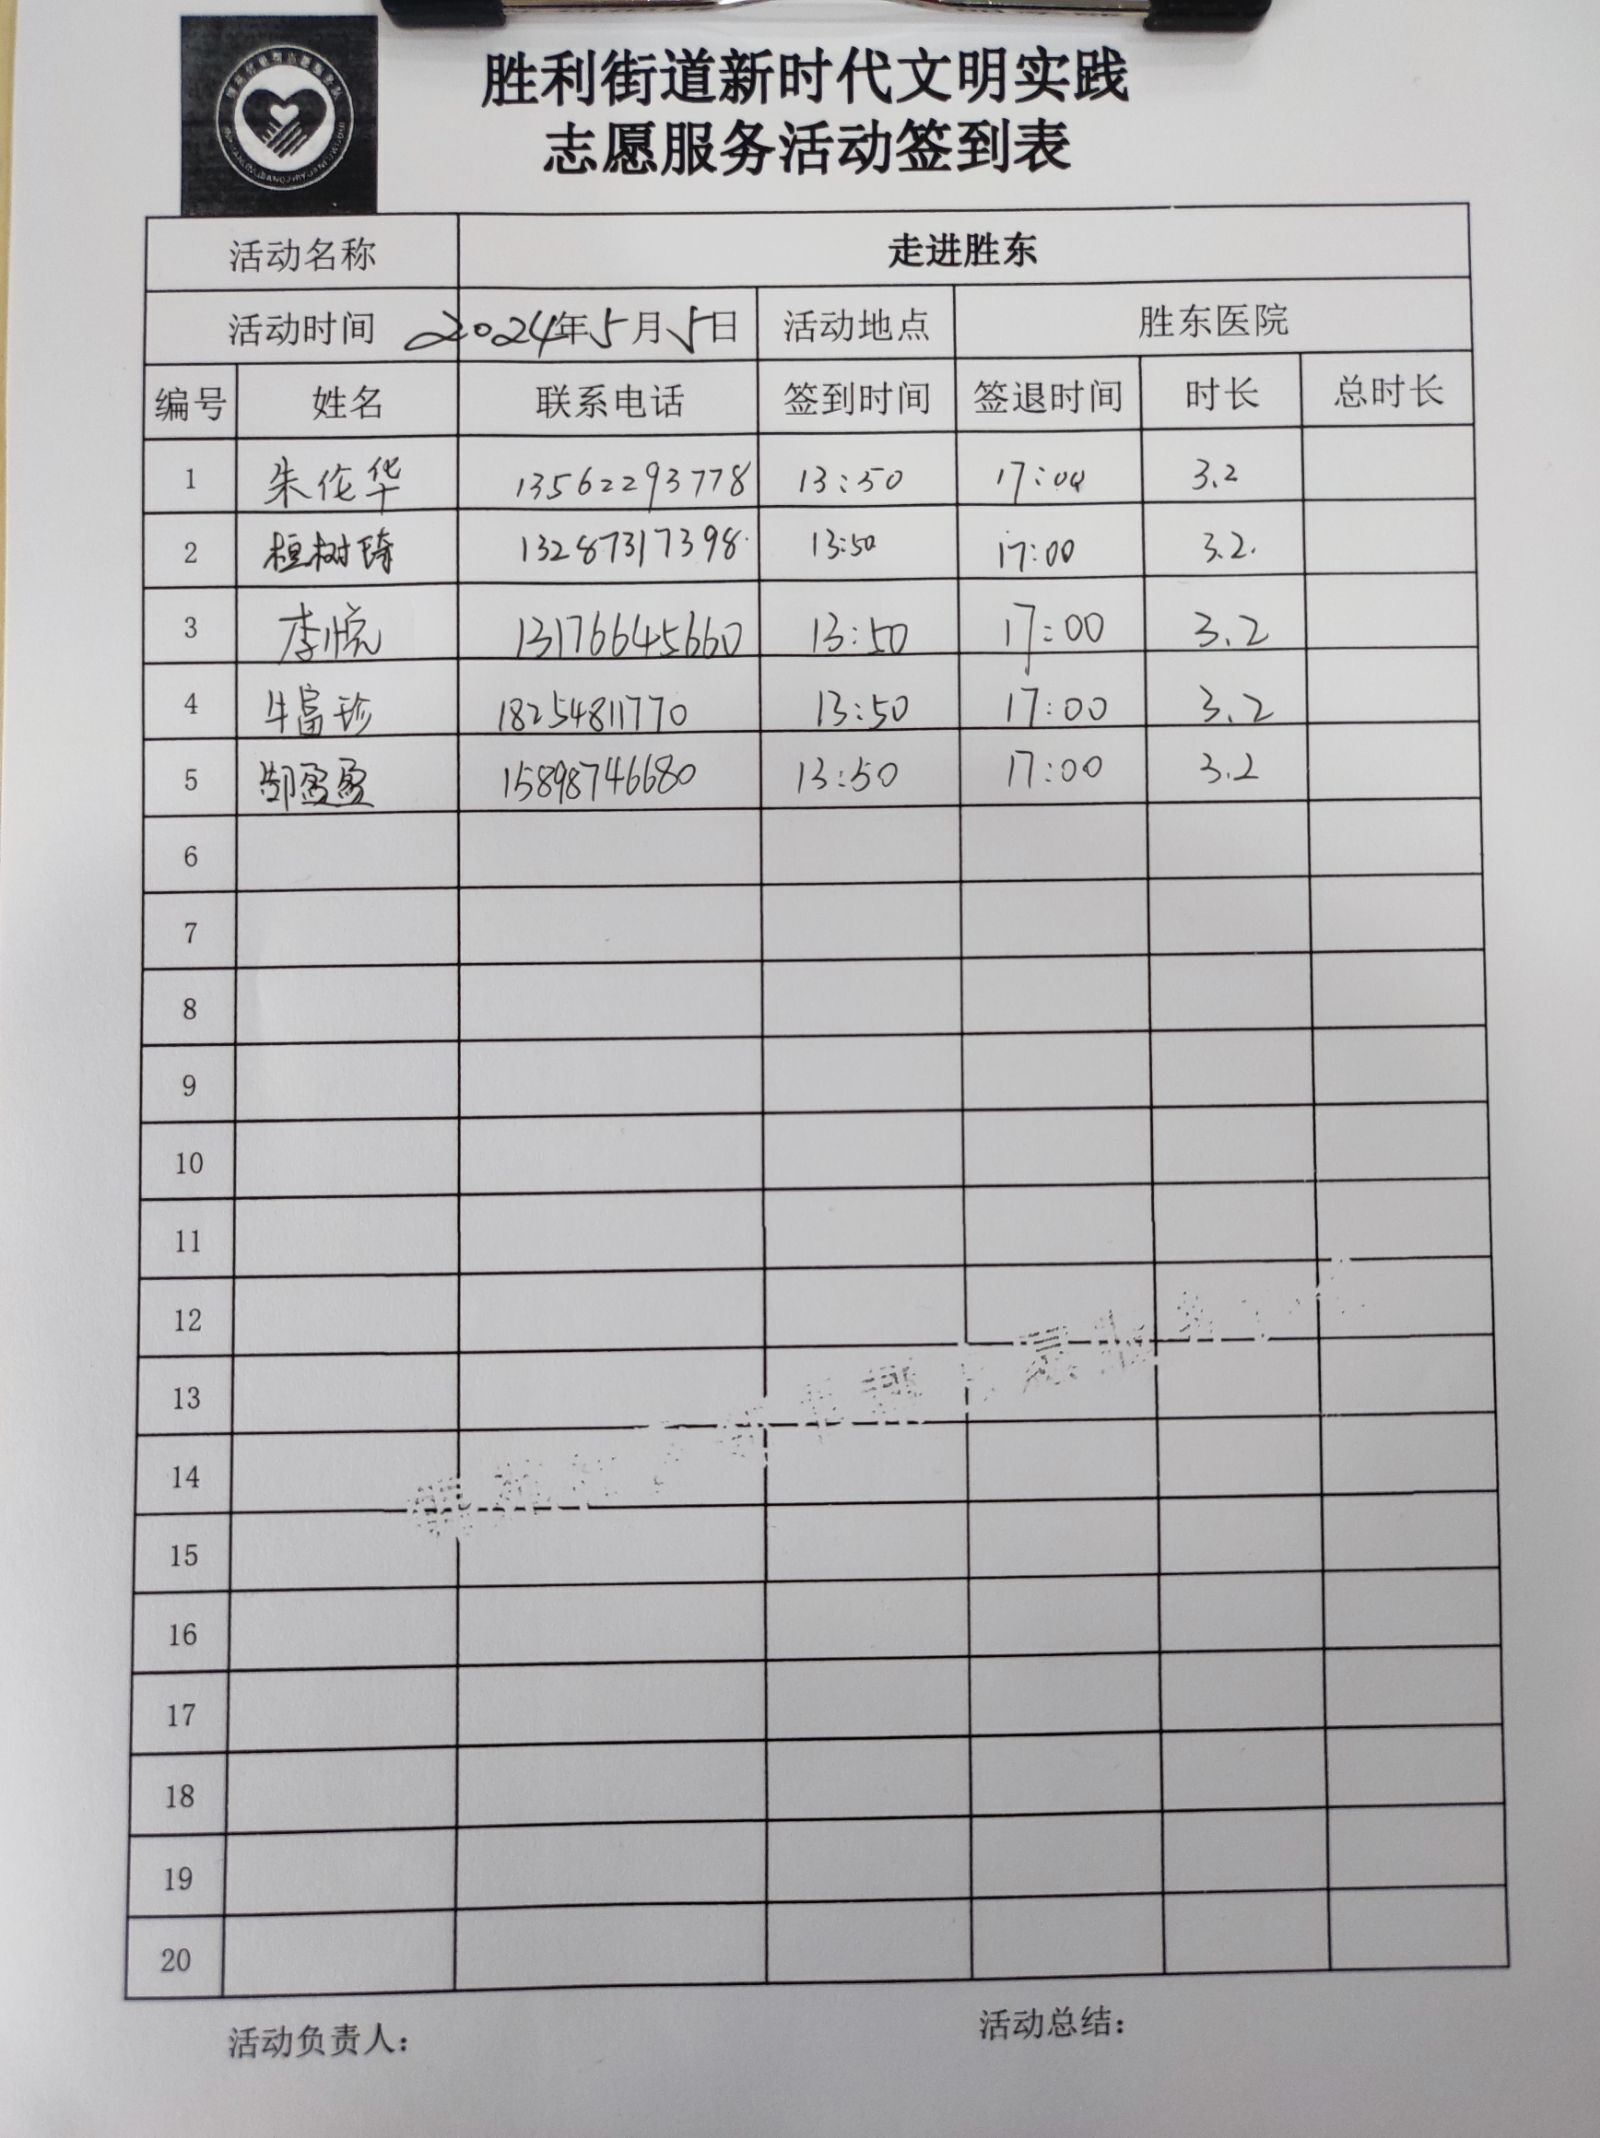 胜利街道新时代文明实践
志愿服务活动签到表
活动名称 走进胜东
活动时间 2024年5月5日 活动地点 胜东医院
编号 姓名 联系电话 签到时间 签退时间 时长 总时长
1 朱伦华 13562293778 13:50 17:00 3.2
2 桓树琦 13287317398 13:50 17:00 3.2
3 李悦 13176645660 13:50 17:00 3.2
4 牛富珍 18254811770 13:50 17:00 3.2
5 盈盈 15898746680 13:50 17:00 3.2
6
7
8
9
10
11
12
13
14
15
16
17
18
19
20
活动负责人: 活动总结: